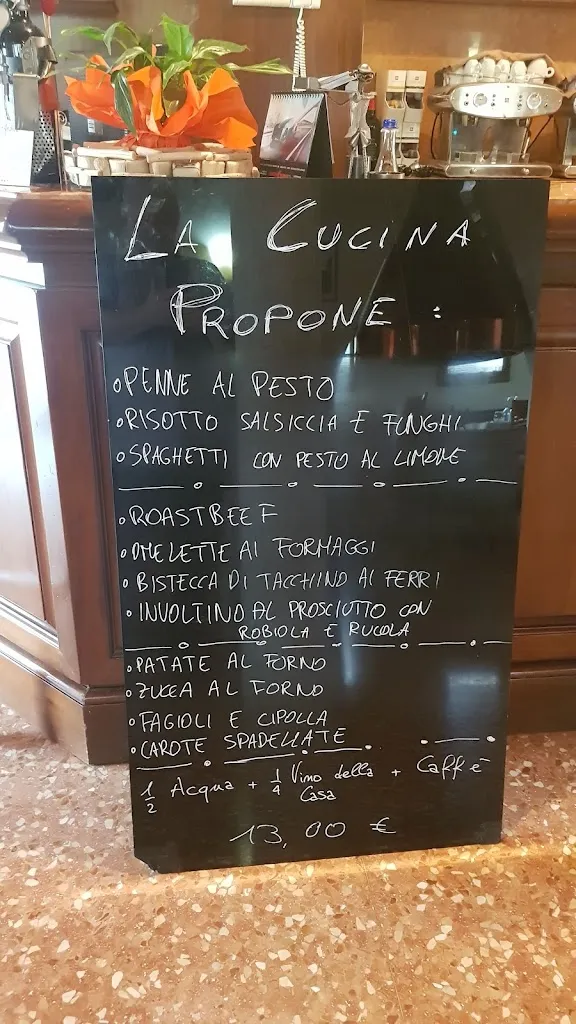 LA CUCINA
PROPONE :
PENNE AL PESTO
RISOTTO SALSICCIA E FUNGHI
SPAGHETTI CON PESTO AL LIMONE
ROASTBEEF
OMELETTE AI FORMAGGI
BISTECCA DI TACCHINO AI FERRI
INVOLTINO AL PROSCIUTTO CON
ROBIOLA E RUCOLA
PATATE AL FORNO
ZUCCA AL FORNO
FAGIOLI E CIPOLLA
CAROTE SPADELLATE
1/2 Acqua + 1/4 Vino della + Caffè
Casa
13,00 €